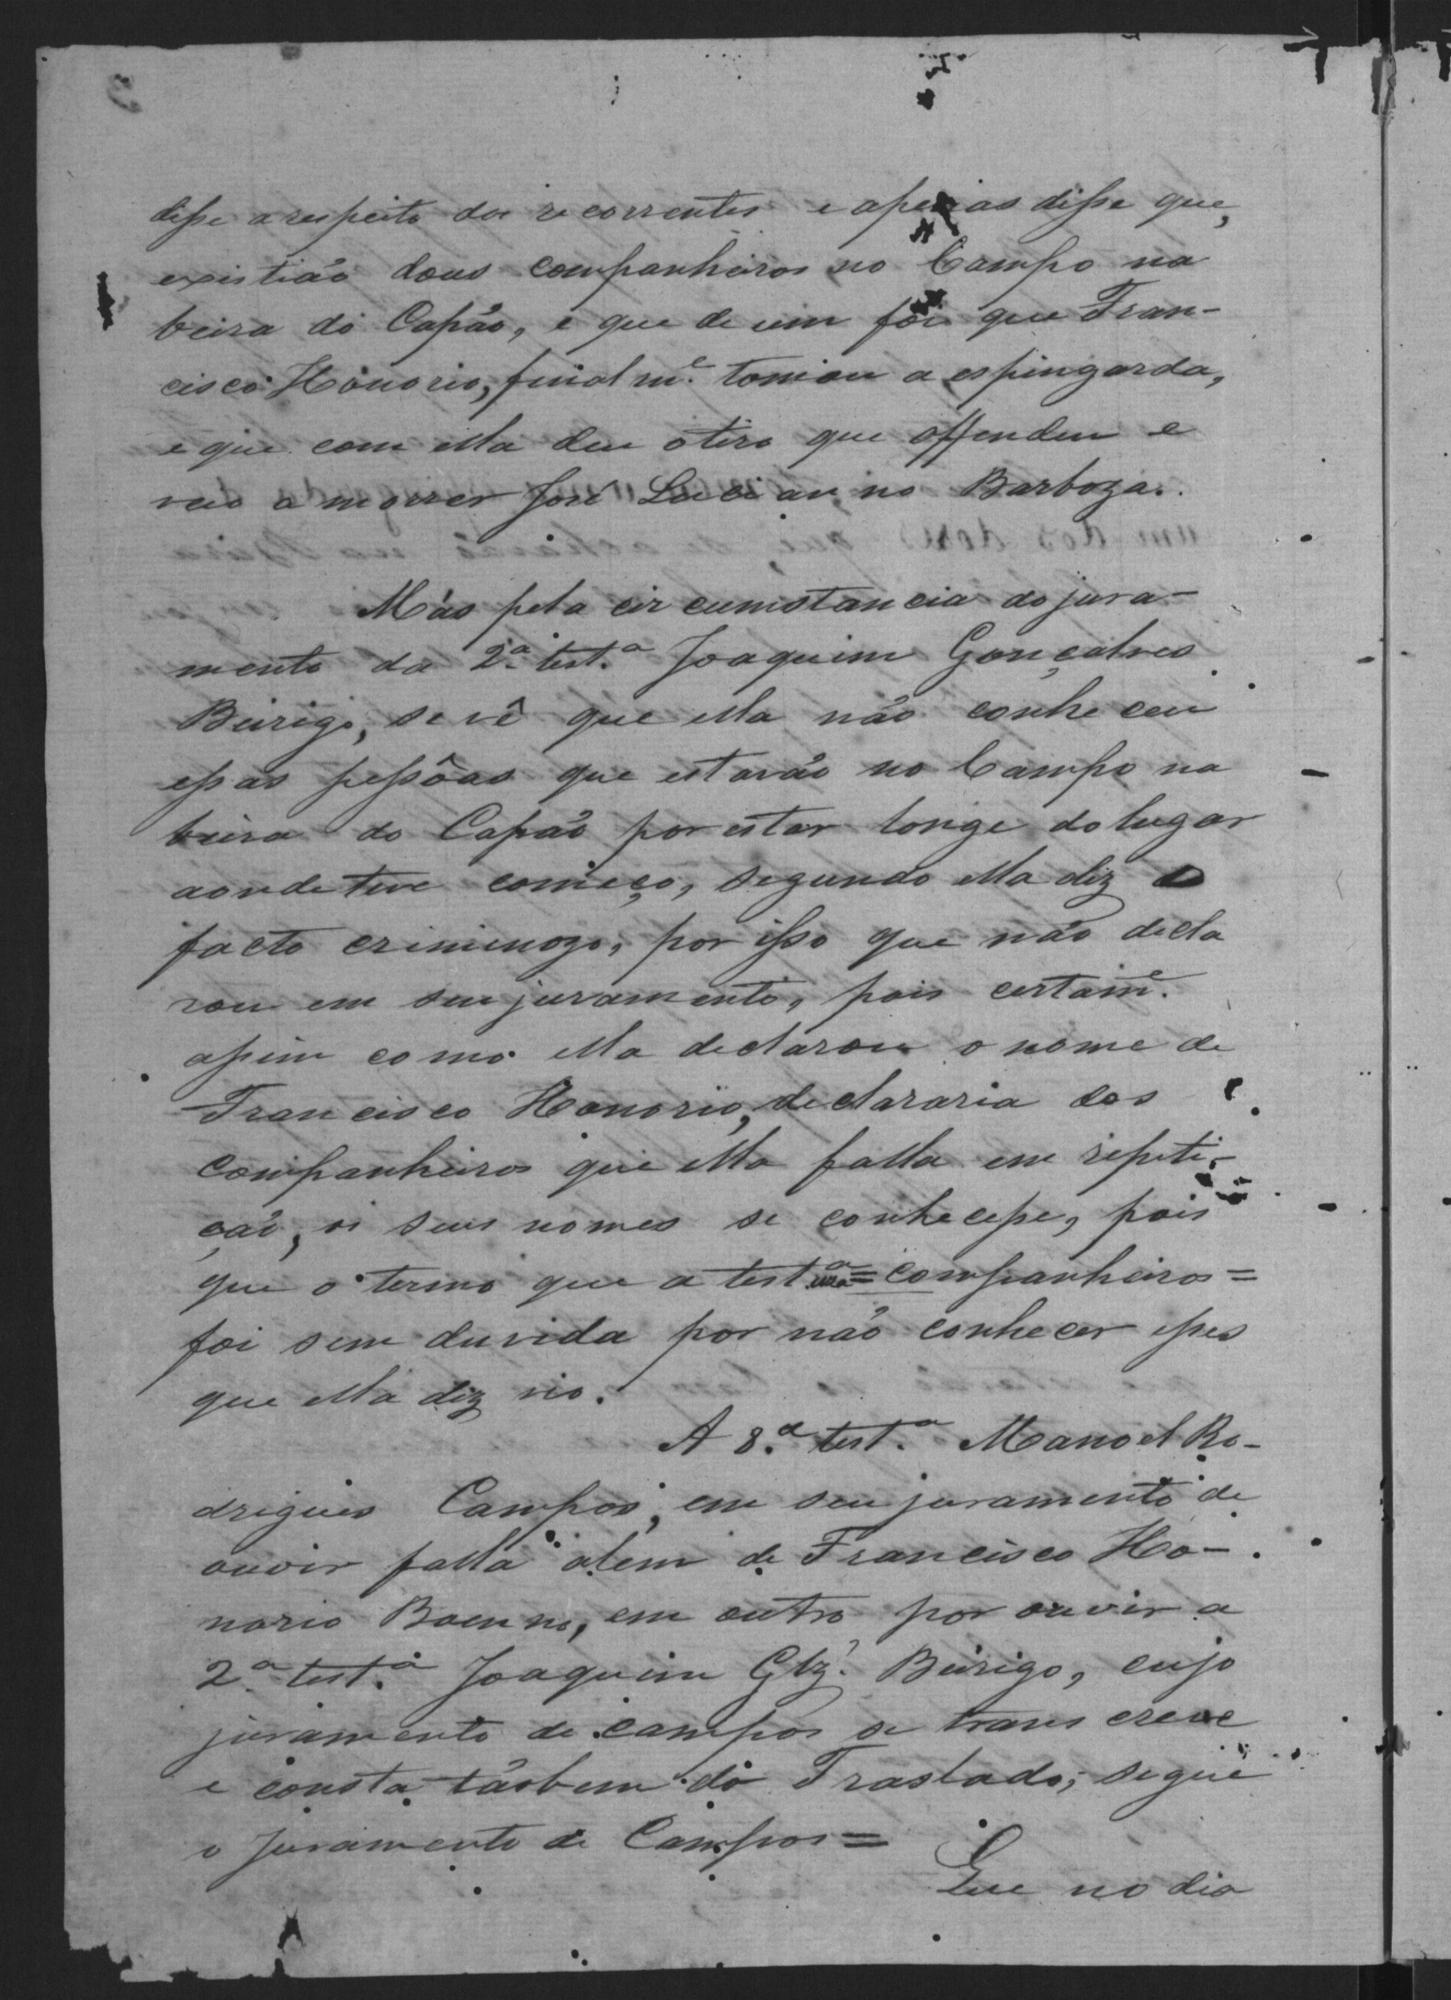 disse a respeito dos recorrentes e apenas disse que,
existião dous companheiros no Campo na
beira do Capão, e que de um foi que Fran-
cisco Honorio, finalm.e tomou a espingarda,
e que com ella deu o tiro que offendeu e
veio a morrer José Lucianno Barboza.
Más pela circumstancia do jura-
mento da 2.a test.a Joaquim Gonçalves
Búrigo, se vê que ella não conheceu
essas pessôas que estavão no Campo na
beira do Capão por estar longe do lugar
aonde teve começo, segundo ella diz o
facto criminozo, por isso que não decla
rou em seu juramento, pois certam.e
assim como ella declarou o nome de
Francisco Honorio, declararia dos
companheiros que ella falla em repeti-
ção, os seus nomes se conhecesse, pois
que o termo que a test.a usa = companheiros =
foi sem duvida por não conhecer esses
que ella diz vio.
A 8.a test.a Manoel Ro-
drigues Campos, em seu juramento de
ouvir falla alem de Francisco Ho-
norio Boenno, em outro por ouvir a
2.a test.a Joaquim Glz. Búrigo, cujo
juramento de Campos se transcreve
e consta tãobem do Traslado; segue
o juramento de Campos =
Que no dia